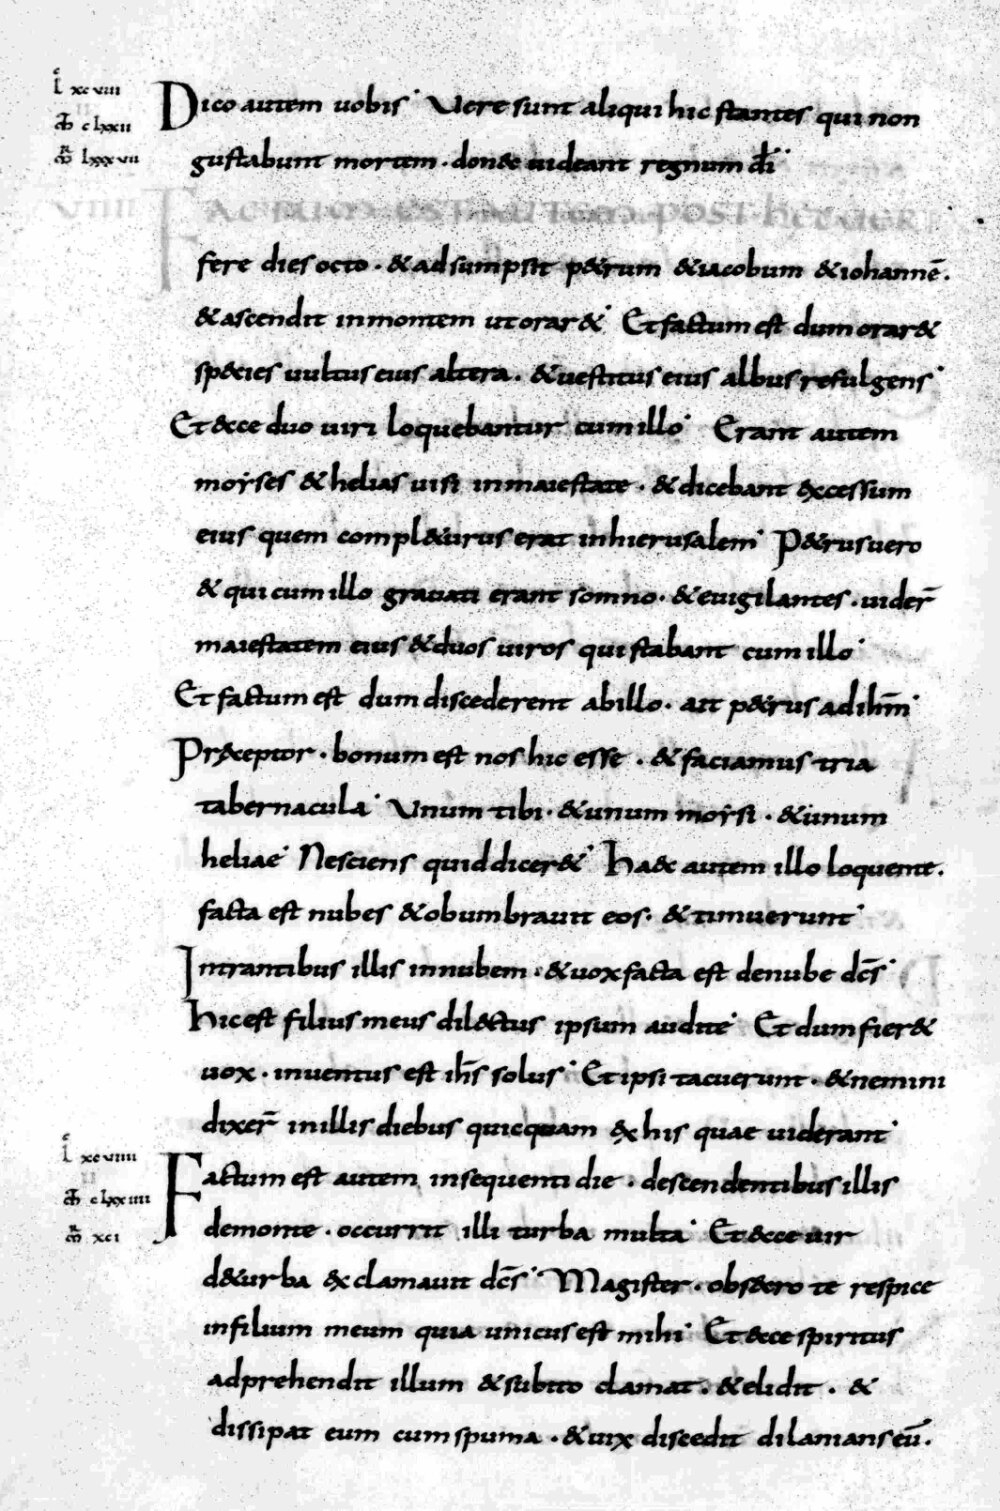 L xcviii
mt clxxii
mr lxxxvii
Dico autem uobis Uere sunt aliqui hic stantes qui non
gustabunt mortem · donec uideant regnum dī
VIIII FACTUM EST AUTEM POST HEC UER
fere dies octo · & adsumpsit p&rum & iacobum & iohannē ·
& ascendit in montem ut orar& Et factum est dum orar&
species uultus eius altera · & uestitus eius albus refulgens
Et ecce duo uiri loquebantur cum illo Erant autem
moyses & helias uisi in maiestate · & dicebant excessum
eius quem compl&urus erat in hierusalem P&rus uero
& qui cum illo grauati erant somno · & euigilantes · uider̄
maiestatem eius & duos uiros qui stabant cum illo
Et factum est dum discederent ab illo · ait p&rus ad ihm̄
Pręceptor · bonum est nos hic esse · & faciamus tria
tabernacula Unum tibi · & unum moysi · & unum
heliae Nesciens quid dicer& Haec autem illo loquente ·
facta est nubes & obumbrauit eos · & timuerunt
Intrantibus illis in nubem · & uox facta est de nube dcs̄
Hic est filius meus dilectus ipsum audite Et dum fier&
uox · inuentus est ihs̄ solus Et ipsi tacuerunt · & nemini
dixer̄ in illis diebus quicquam ex his quae uiderant
L xcviiii
mt clxxiiii
mr xci
Factum est autem in sequenti die · descendentibus illis
de monte · occurrit illi turba multa Et ecce uir
d& urba exclamauit dcs̄ Magister · obsecro te respice
in filium meum quia unicus est mihi Et ecce spiritus
adprehendit illum & subito clamat · & elidit · &
dissipat eum cum spuma · & uix discedit dilanians eū ·